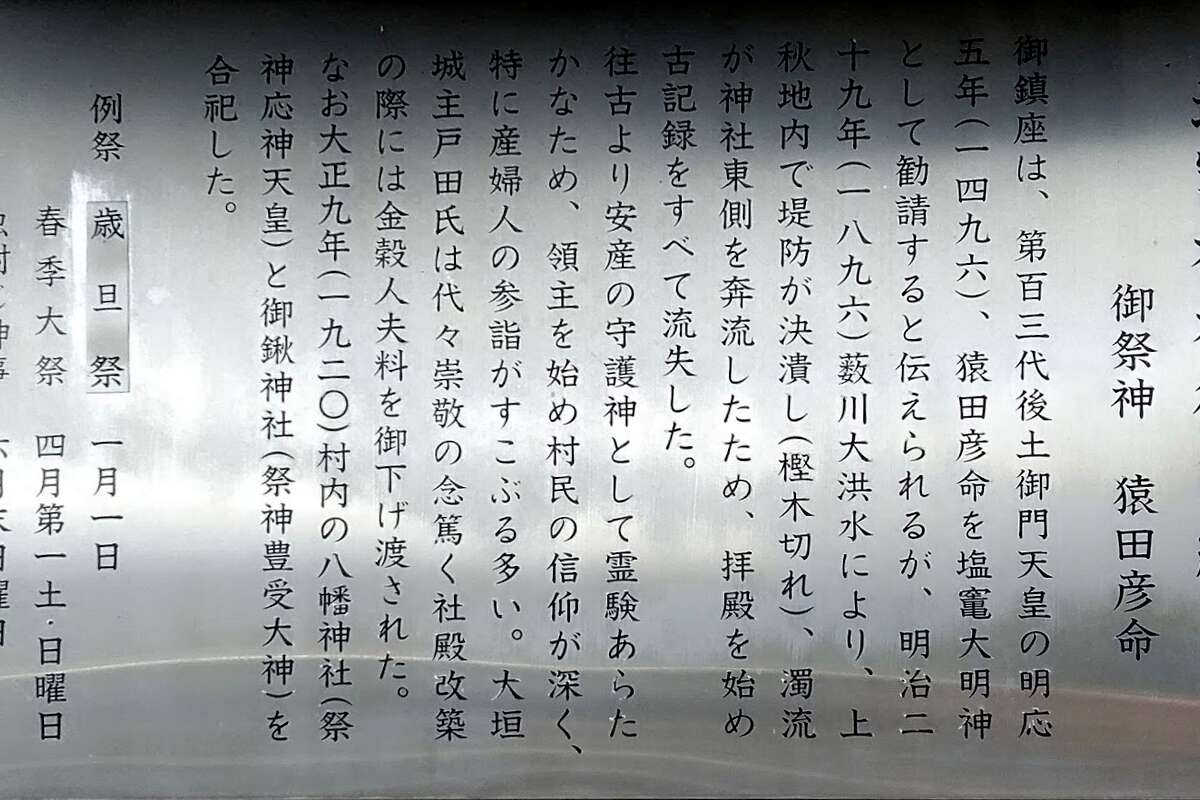 御祭神　猿田彦命
御鎮座は、第百三代後土御門天皇の明応
五年(一四九六)、猿田彦命を塩竃大明神
として勧請すると伝えられるが、明治二
十九年(一八九六)薮川大洪水により、上
秋地内で堤防が決潰し(樫木切れ)、濁流
が神社東側を奔流したため、拝殿を始め
古記録をすべて流失した。
往古より安産の守護神として霊験あらた
かなため、領主を始め村民の信仰が深く、
特に産婦人の参詣がすこぶる多い。大垣
城主戸田氏は代々崇敬の念篤く社殿改築
の際には金穀人夫料を御下げ渡された。
なお大正九年(一九二〇)村内の八幡神社(祭
神応神天皇)と御鍬神社(祭神豊受大神)を
合祀した。
例祭　歳旦祭　一月一日
春季大祭　四月第一土・日曜日